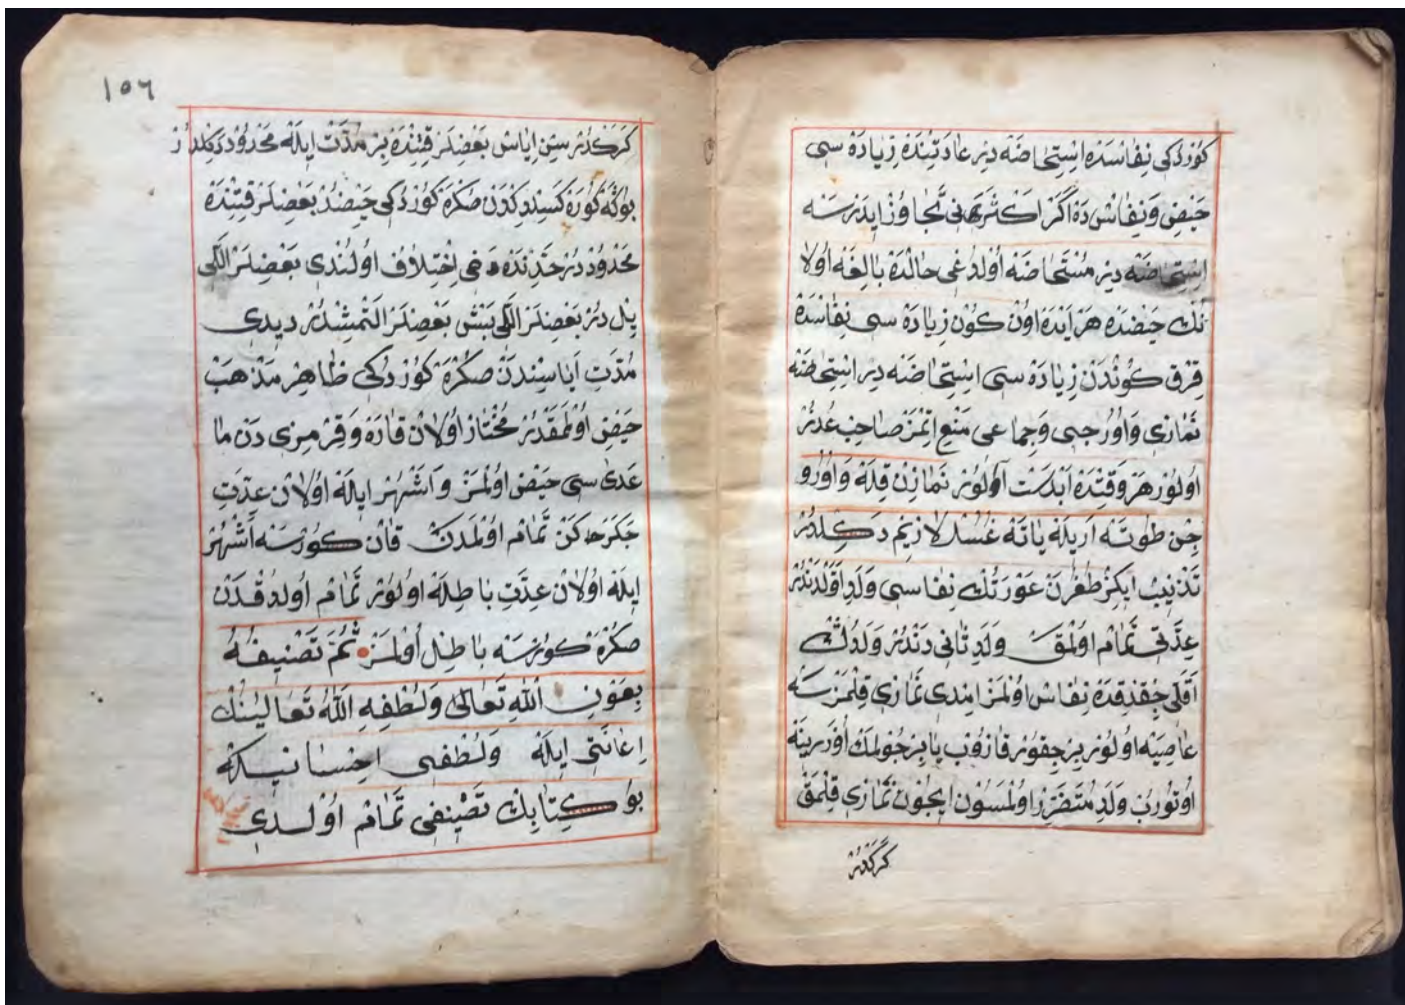 كوردكى نفاسده استحاضه دير عادتنده زياده سى
حيض و نفاس ده اگر اكثرهنى تجاوز ايدرسه
استحاضه دير مستحاضه اولدغى حالده بالغه اولا
نك حيضده هر آيده اون كون زياده سى نفاسده
قرق كوندن زياده سى استحاضه دير استحاضه
نمازى و اورجى و جماعى منع اتمز صاحب عذر
اولور هر وقتده ابدست آلور نمازن قله و اورو
جن طوته اريله ياته غسل لازم دكلدر
تذنيب ايكز طغرن عورتك نفاسى ولد اولدندر
عدتى تمام اولمق ولد ثانى دندر ولدك
اقلى چقدقده نفاس اولمز ايمدى نمازى قلمزسه
عاصيه اولور بر چقور قازوب يا بر چولمك اوزرينه
اوتورب ولد متضرر اولمسون ايچون نمازى قلمق
كركدر
١٥٦
كركدر سن اياس بعضلر قتنده بر مدت ايله محدود دكلدر
بوكه كوره كسندكدن صكره كوردكى حيضدر بعضلر قتنده
محدوددر حدنده دخى اختلاف اولندى بعضلر اللى
يل در بعضلر اللى بش بعضلر التمشدر ديدى
مدت اياسندن صكره كوردكى ظاهر مذهب
حيض اولمقدر مختار اولان قاره و قرمزى دن ما
عداسى حيض اولمز و اشهر ايله اولان عدت
چكركن تمام اولمدن قان كورسه اشهر
ايله اولان عدت باطله اولور تمام اولدقدن
صكره كورسه باطل اولمز تم تصنيفه
بعون الله تعالى ولطفه الله تعالينك
اعانتى ايله ولطفى احسانيله
بو كتابك تصنيفى تمام اولدى